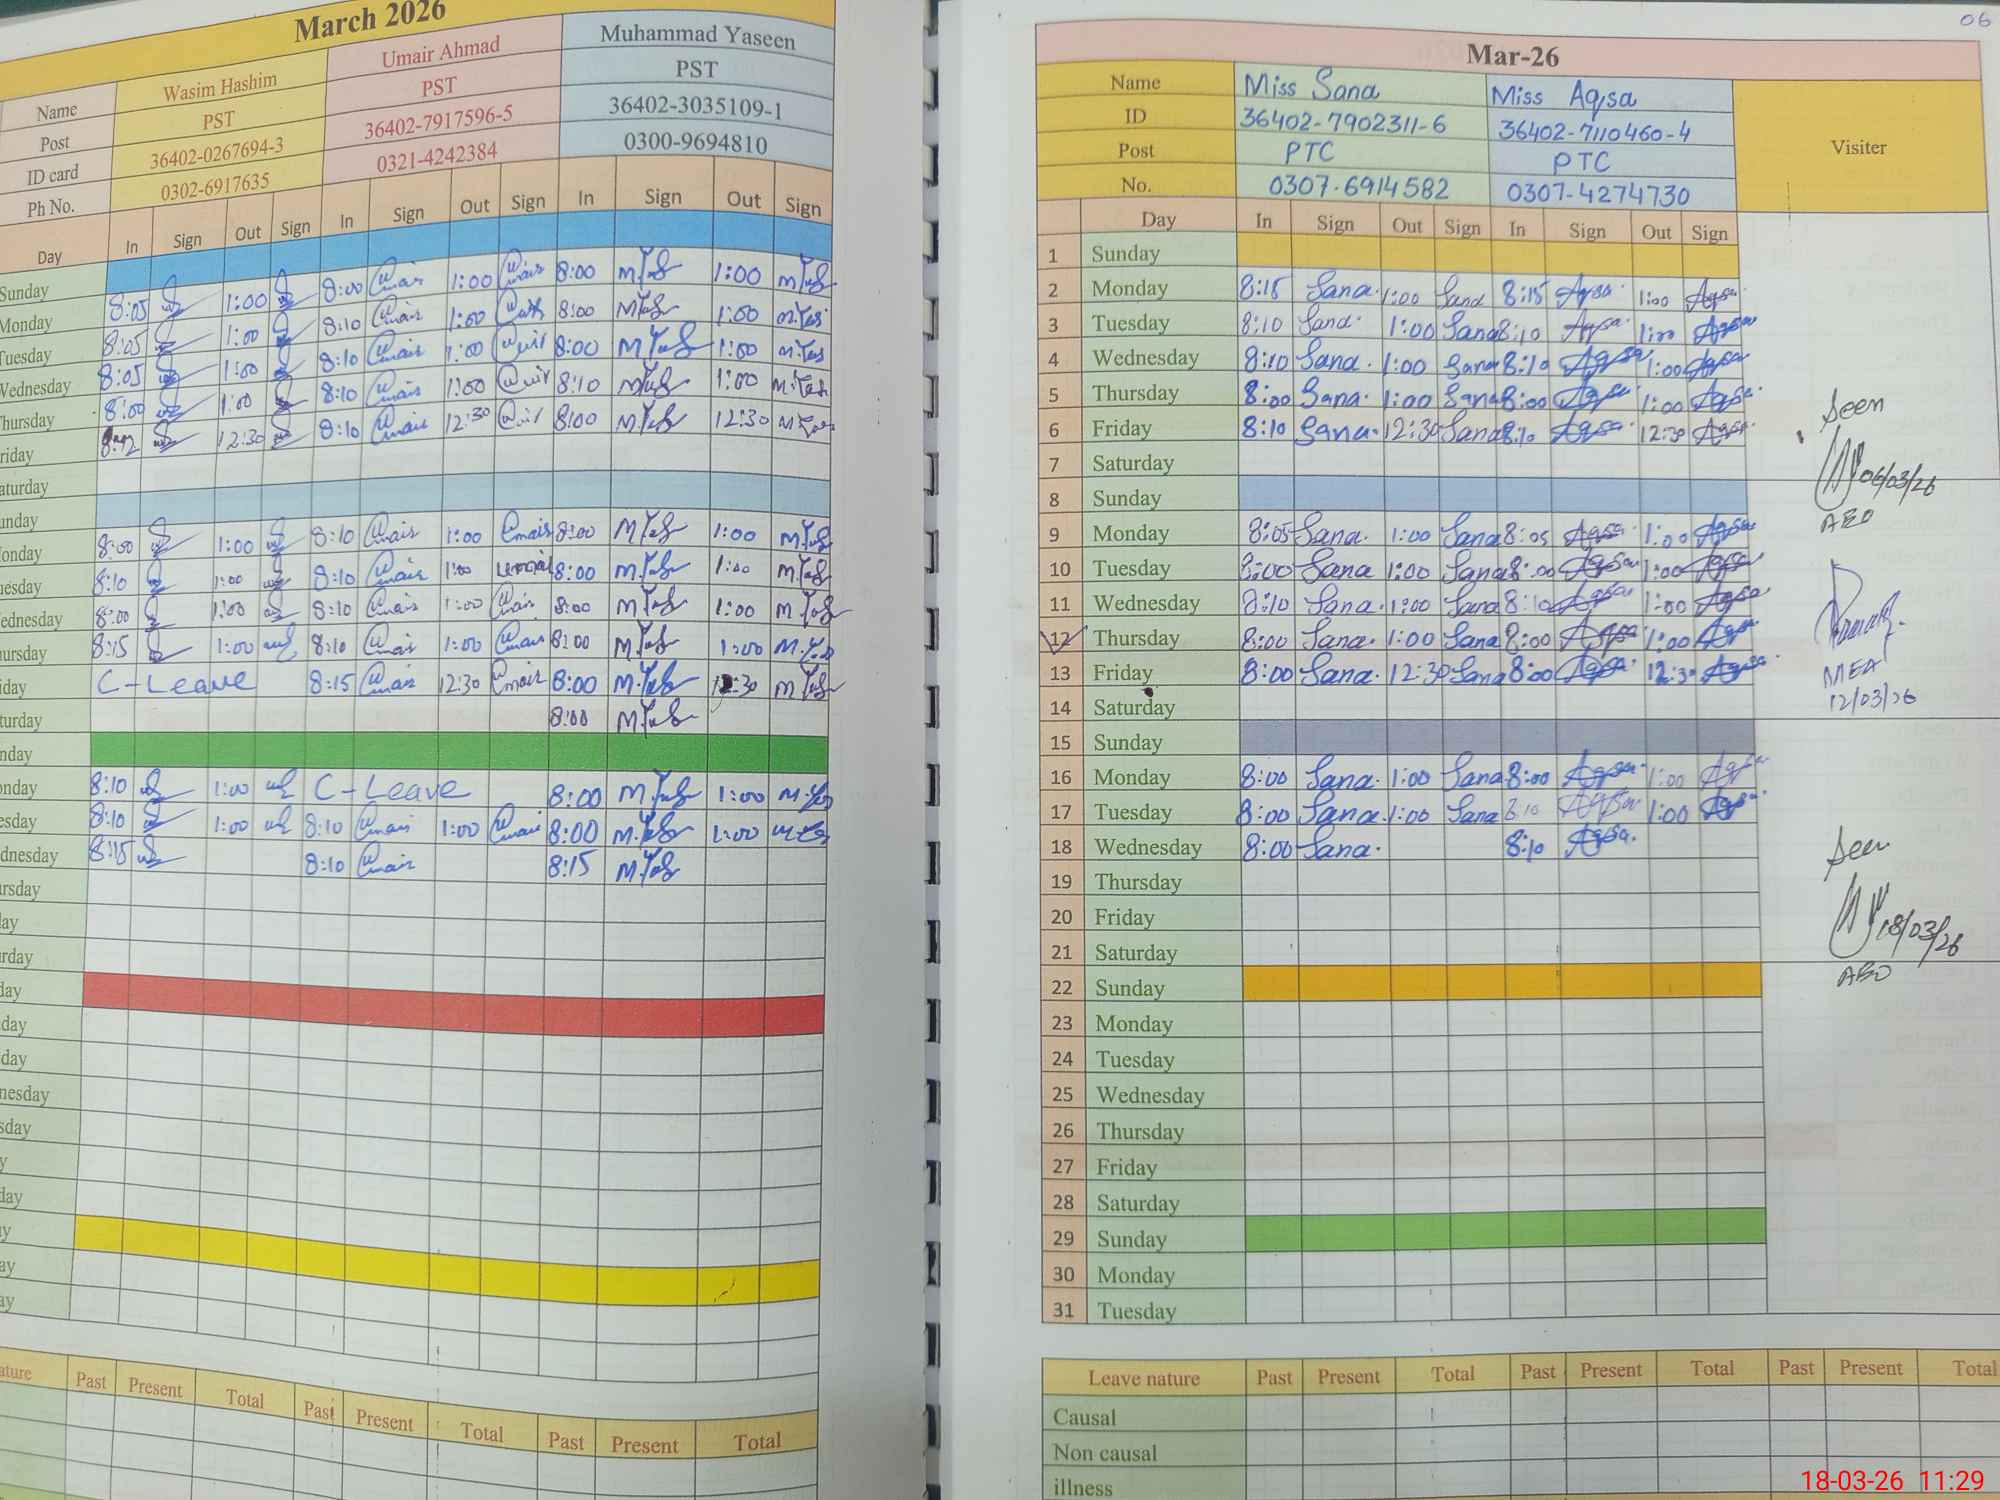 March 2026
Name Wasim Hashim Umair Ahmad Muhammad Yaseen
Post PST PST PST
ID card 36402-0267694-3 36402-7917596-5 36402-3035109-1
Ph No. 0302-6917635 0321-4242384 0300-9694810
Day In Sign Out Sign In Sign Out Sign In Sign Out Sign
Sunday
Monday 8:05 1:00 8:00 Umair 1:00 Umair 8:00 M.Yas 1:00 M.Yas
Tuesday 8:05 1:00 8:10 Umair 1:00 8:00 M.Yas 1:00 M.Yas
Wednesday 8:05 1:00 8:10 Umair 1:00 8:00 M.Yas 1:00 M.Yas
Thursday 8:00 1:00 8:10 Umair 1:00 8:10 M.Yas 1:00 M.Yas
Friday 12:30 8:10 Umair 12:30 8:00 M.Yas 12:30 M.Yas
aturday
unday
onday 8:00 1:00 8:10 Umair 1:00 Umair 8:00 M.Yas 1:00 M.Yas
uesday 8:10 1:00 8:10 Umair 1:00 8:00 M.Yas 1:00 M.Yas
ednesday 8:00 1:00 8:10 Umair 1:00 Umair 8:00 M.Yas 1:00 M.Yas
ursday 8:15 1:00 8:10 Umair 1:00 Umair 8:00 M.Yas 1:00 M.Yas
iday C-Leave 8:15 Umair 12:30 Umair 8:00 M.Yas 12:30 M.Yas
turday 8:00 M.Yas
nday
onday 8:10 1:00 C-Leave 8:00 M.Yas 1:00 M.Yas
esday 8:10 1:00 8:10 Umair 1:00 Umair 8:00 M.Yas 1:00 M.Yas
dnesday 8:15 8:10 Umair 8:15 M.Yas
ursday
ay
urday
day
day
day
nesday
sday
y
day
y
ay
ay
ature Past Present Total Past Present Total Past Present Total
06
Mar-26
Name Miss Sana Miss Aqsa Visiter
ID 36402-7902311-6 36402-7110460-4
Post PTC PTC
No. 0307-6914582 0307-4274730
Day In Sign Out Sign In Sign Out Sign
1 Sunday
2 Monday 8:15 Sana. 1:00 Sana 8:15 Aqsa. 1:00 Aqsa.
3 Tuesday 8:10 Sana. 1:00 Sana 8:10 Aqsa. 1:00 Aqsa
4 Wednesday 8:10 Sana. 1:00 Sana 8:10 Aqsa 1:00 Aqsa
5 Thursday 8:00 Sana. 1:00 Sana 8:00 Aqsa 1:00 Aqsa
6 Friday 8:10 Sana. 12:30 Sana 8:10 Aqsa. 12:30 Aqsa.
7 Saturday
8 Sunday
9 Monday 8:05 Sana. 1:00 Sana 8:05 Aqsa 1:00 Aqsa
10 Tuesday 8:00 Sana 1:00 Sana 8:00 Aqsa 1:00 Aqsa
11 Wednesday 8:10 Sana. 1:00 Sana 8:10 Aqsa 1:00 Aqsa
12 Thursday 8:00 Sana. 1:00 Sana 8:00 Aqsa 1:00 Aqsa
13 Friday 8:00 Sana. 12:30 Sana 8:00 Aqsa 12:30 Aqsa
14 Saturday
15 Sunday
16 Monday 8:00 Sana. 1:00 Sana 8:00 Aqsa 1:00 Aqsa
17 Tuesday 8:00 Sana. 1:00 Sana 8:10 Aqsa 1:00 Aqsa
18 Wednesday 8:00 Sana. 8:10 Aqsa.
19 Thursday
20 Friday
21 Saturday
22 Sunday
23 Monday
24 Tuesday
25 Wednesday
26 Thursday
27 Friday
28 Saturday
29 Sunday
30 Monday
31 Tuesday
Seen
06/03/26
AEO
MEA
12/03/26
Seen
18/03/26
AEO
Leave nature Past Present Total Past Present Total Past Present Total
Causal
Non causal
illness
18-03-26 11:29